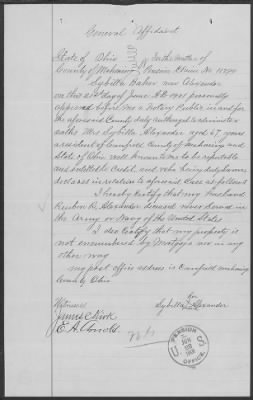 General Affidavit
State of Ohio In the matter of
County of Mahoning Pension Claim No
Sybilla Baker now Alexander
on this day of June A.D. 1901 personally
appeared before me a Notary Public in and for
the aforesaid County duly authorized to administer
oaths Mrs Sybilla Alexander aged 67 years
a resident of Canfield county of Mahoning and
State of Ohio well known to me to be reputable
and entitled to credit and who being duly sworn
declares in relation to aforesaid case as follows
I hereby certify that my husband
Reuben R. Alexander deceased never served in
the Army or Navy of the United States
I also certify that my property is
not encumbered by Mortgage nor in any
other way
my post office address is Canfield Mahoning
County Ohio
Witnesses
Sybilla Alexander
James
E A Arnold
PENSION
OFFICE
U S